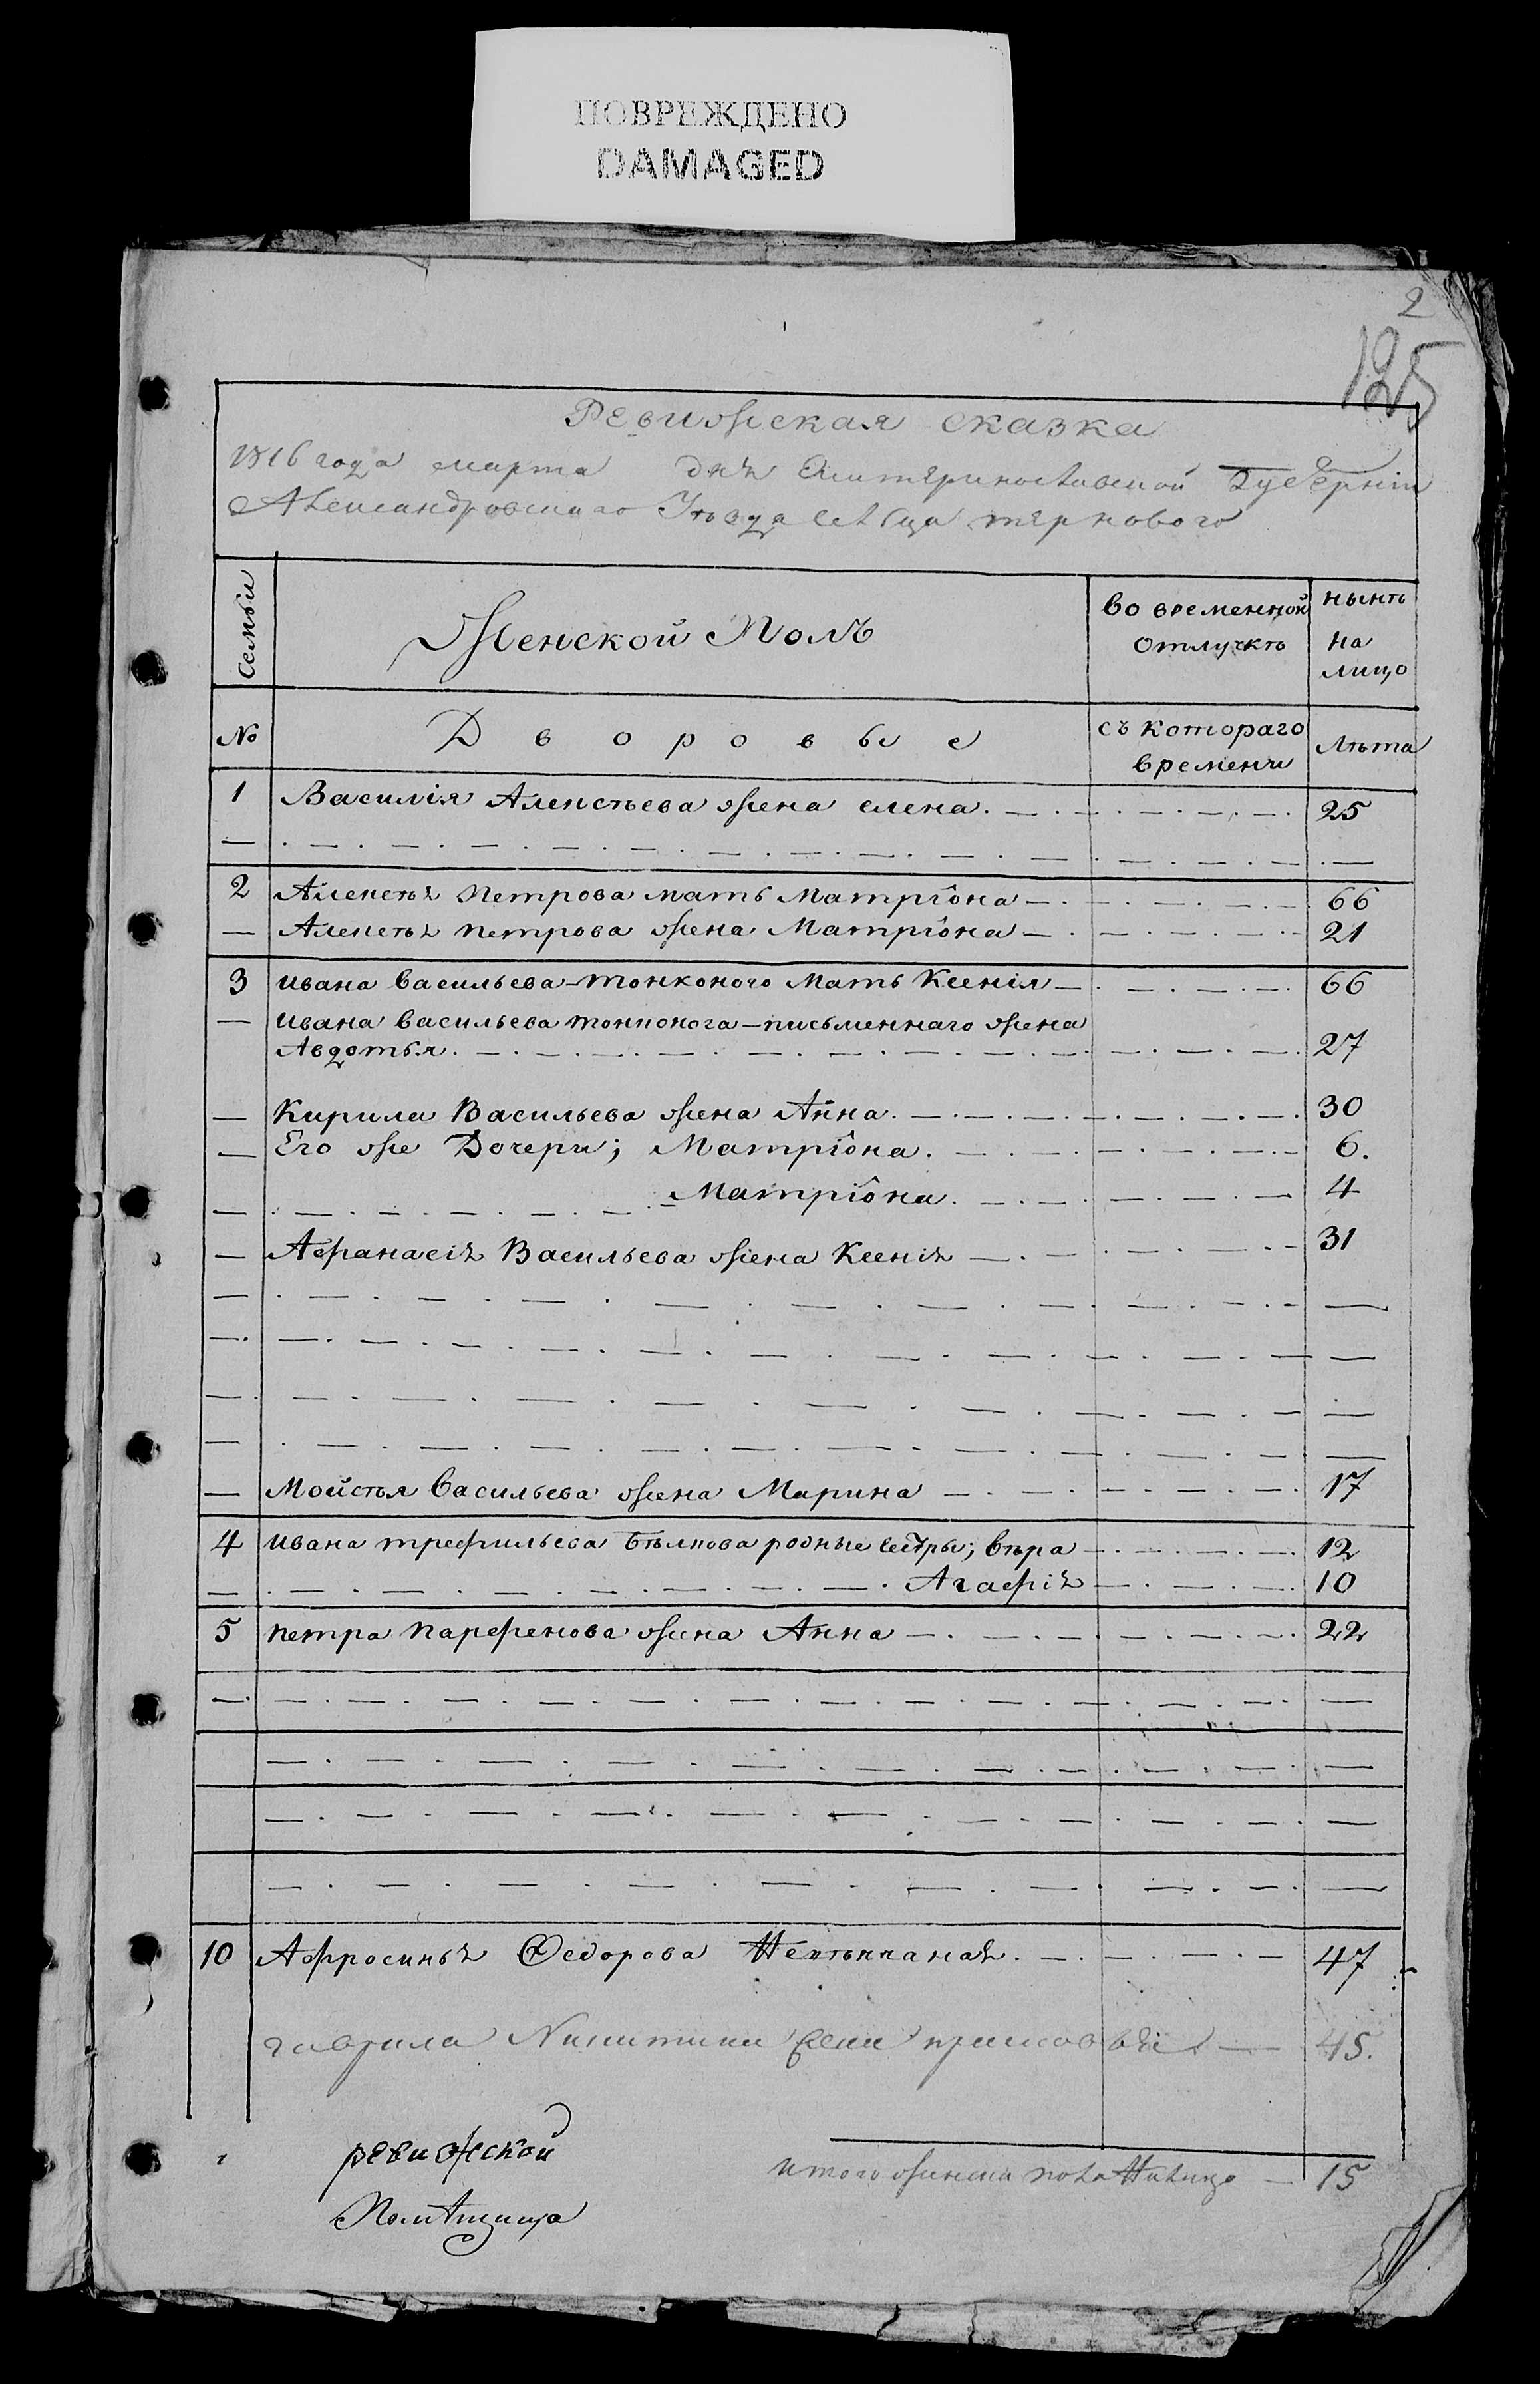 ПОВРЕЖДЕНО
DAMAGED
2
125
Ревижская сказка
1816 года марта дня Екатеринославской Губернїи
Александровскаго Уѣзда сельца тернового
Семьи
Женской Полъ
во временной отлучкѣ
нынѣ на лицо
№
Дворовые
съ котораго времени
Лѣта
1 Василїя Алексѣева жена елена. 25
2 Алексѣя Петрова мать Матрїона 66
Алексѣя петрова жена Матрїона 21
3 ивана васильева-тонконого Мать Ксенїя 66
ивана васильева тонконога-письменнаго жена
Авдотья. 27
Кирила Васильева жена Анна. 30
Его же Дочери; Матрїона. 6.
Матрїона. 4
Афанасїя Васильева жена Ксенїя 31
Мойсѣя васильева жена Марина 17
4 ивана трефильева бѣлкова родные сестры; вѣра 12
Агафїя 10
5 петра парфенова жена Анна 22
10 Афросинья Федорова 47
гаврила Никитина 45.
ревижской
итого женска пола На лицо 15
Помѣщица